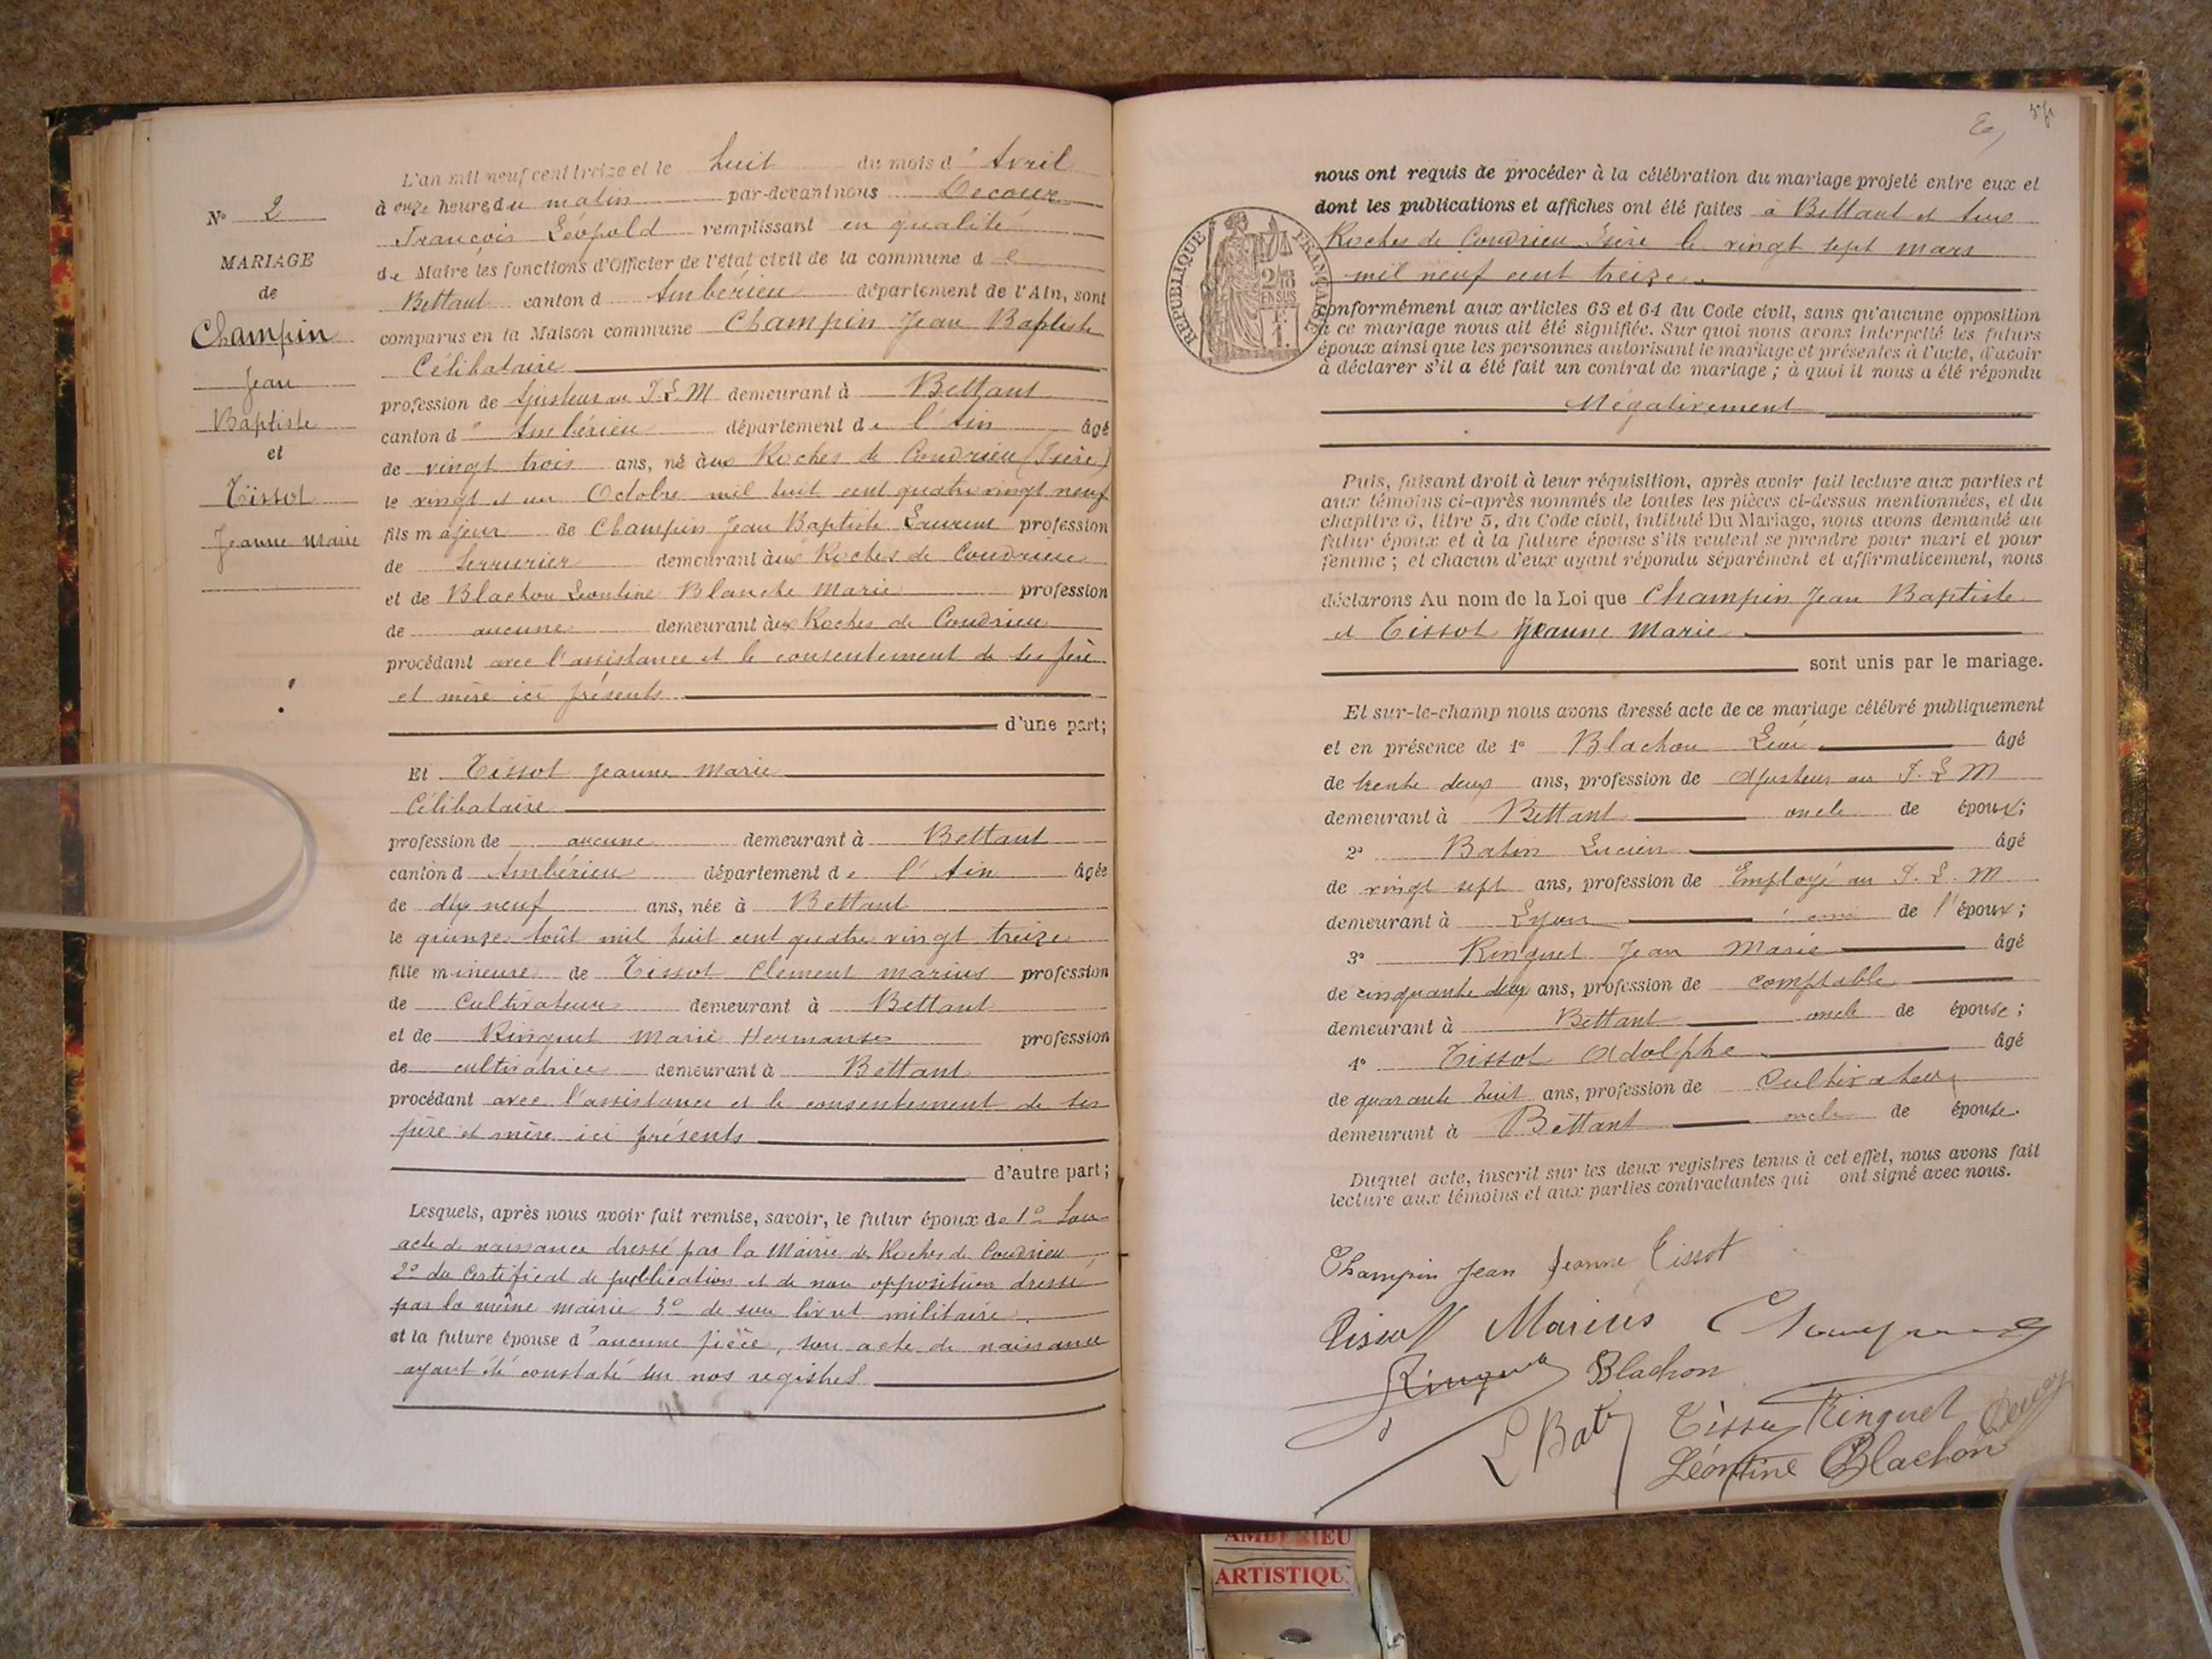 N° 2
MARIAGE
de
Champin
Jean
Baptiste
et
Tissot
Jeanne Marie
L'an mil neuf cent treize et le huit du mois d'Avril
à onze heures du matin par-devant nous Decour
François Léopold remplissant en qualité
de Maire les fonctions d'Officier de l'état civil de la commune de
Bettant canton d'Ambérieu département de l'Ain, sont
comparus en la Maison commune Champin Jean Baptiste
Célibataire
profession de Ajusteur au P.L.M demeurant à Bettant
canton d'Ambérieu département de l'Ain âgé
de vingt trois ans, né aux Roches de Condrieu (Isère)
le vingt et un Octobre mil huit cent quatre vingt neuf
fils majeur de Champin Jean Baptiste Laurent profession
de Serrurier demeurant aux Roches de Condrieu
et de Blachon Léontine Blanche Marie profession
de aucune demeurant aux Roches de Condrieu
procédant avec l'assistance et le consentement de ses père
et mère ici présents
d'une part;
Et Tissot Jeanne Marie
Célibataire
profession de aucune demeurant à Bettant
canton d'Ambérieu département de l'Ain âgée
de dix neuf ans, née à Bettant
le quinze Août mil huit cent quatre vingt treize
fille mineure de Tissot Clément Marius profession
de Cultivateur demeurant à Bettant
et de Ringuet Marie Hermanse profession
de cultivatrice demeurant à Bettant
procédant avec l'assistance et le consentement de ses
père et mère ici présents
d'autre part;
Lesquels, après nous avoir fait remise, savoir, le futur époux de 1° Son
acte de naissance dressé par la Mairie des Roches de Condrieu
2° du Certificat de publication et de non opposition dressé
par la même mairie 3° de son livret militaire.
et la future épouse d'aucune pièce, son acte de naissance
ayant été constaté sur nos registres
nous ont requis de procéder à la célébration du mariage projeté entre eux et
dont les publications et affiches ont été faites à Bettant et aux
Roches de Condrieu Isère le vingt sept mars
mil neuf cent treize.
RÉPUBLIQUE FRANÇAISE
conformément aux articles 63 et 64 du Code civil, sans qu'aucune opposition
à ce mariage nous ait été signifiée. Sur quoi nous avons interpellé les futurs
époux ainsi que les personnes autorisant le mariage et présentes à l'acte, d'avoir
à déclarer s'il a été fait un contrat de mariage ; à quoi il nous a été répondu
Négativement
Puis, faisant droit à leur réquisition, après avoir fait lecture aux parties et
aux témoins ci-après nommés de toutes les pièces ci-dessus mentionnées, et du
chapitre 6, titre 5, du Code civil, intitulé Du Mariage, nous avons demandé au
futur époux et à la future épouse s'ils veulent se prendre pour mari et pour
femme ; et chacun d'eux ayant répondu séparément et affirmativement, nous
déclarons Au nom de la Loi que Champin Jean Baptiste
et Tissot Jeanne Marie
sont unis par le mariage.
Et sur-le-champ nous avons dressé acte de ce mariage célébré publiquement
et en présence de 1° Blachon Léon âgé
de trente deux ans, profession de Ajusteur au P.L.M
demeurant à Bettant oncle de époux;
2° Batin Lucien âgé
de vingt sept ans, profession de Employé au P.L.M
demeurant à Lyon ami de l'époux;
3° Ringuet Jean Marie âgé
de cinquante deux ans, profession de comptable
demeurant à Bettant oncle de épouse;
4° Tissot Adolphe âgé
de quarante huit ans, profession de Cultivateur
demeurant à Bettant oncle de épouse.
Duquel acte, inscrit sur les deux registres tenus à cet effet, nous avons fait
lecture aux témoins et aux parties contractantes qui ont signé avec nous.
Champin Jean Jeanne Tissot
Tissot Marius
Ringuet Blachon
L Batin Tissot Ringuet
Léontine Blachon
AMBERIEU
ARTISTIQU